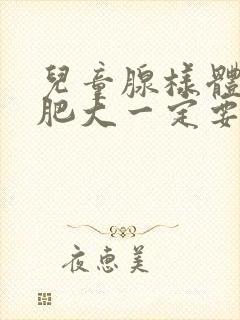 兒童腺樣體
肥大一定要
夜惠美